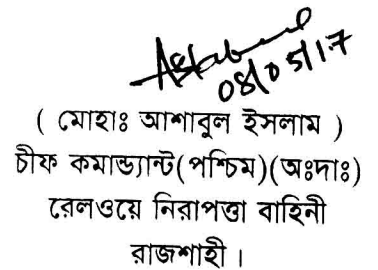 08/05/17
( মোহাঃ আশাবুল ইসলাম )
চীফ কমান্ড্যান্ট(পশ্চিম)(অঃদাঃ)
রেলওয়ে নিরাপত্তা বাহিনী
রাজশাহী ।